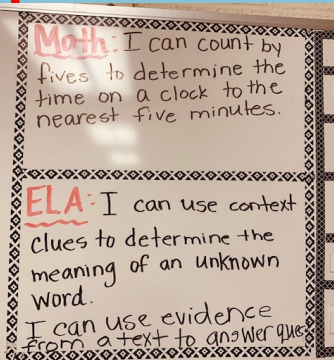 Math: I can count by
fives to determine the
time on a clock to the
nearest five minutes.
ELA: I can use context
clues to determine the
meaning of an unknown
word.
I can use evidence
from a text to answer ques